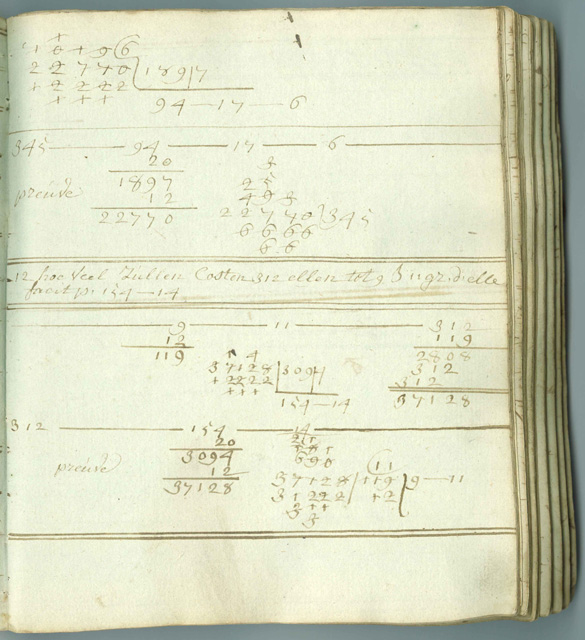 1 0 4 9 6
2 2 7 7 0 | 1 8 9 | 7
1 2 2 2 2
94 — 17 — 6
345 — 94 — 17 — 6
20
1897
preuve
12
22770
22770 ) 345
6 6 6 6
6 6
12 hoe veel Zullen Costen 312 ellen tot 9 ß 11 gr. d'elle
facit p. 154 — 14
9 — 11 — 312
12 119
119 2808
1 4 312
37128 | 309 | 312
1 2222 37128
154 — 14
312 — 154 — 14
20
3094
preuve
12
37128
690
11
37128 ( 119 ( 9 — 11
31222 12
3